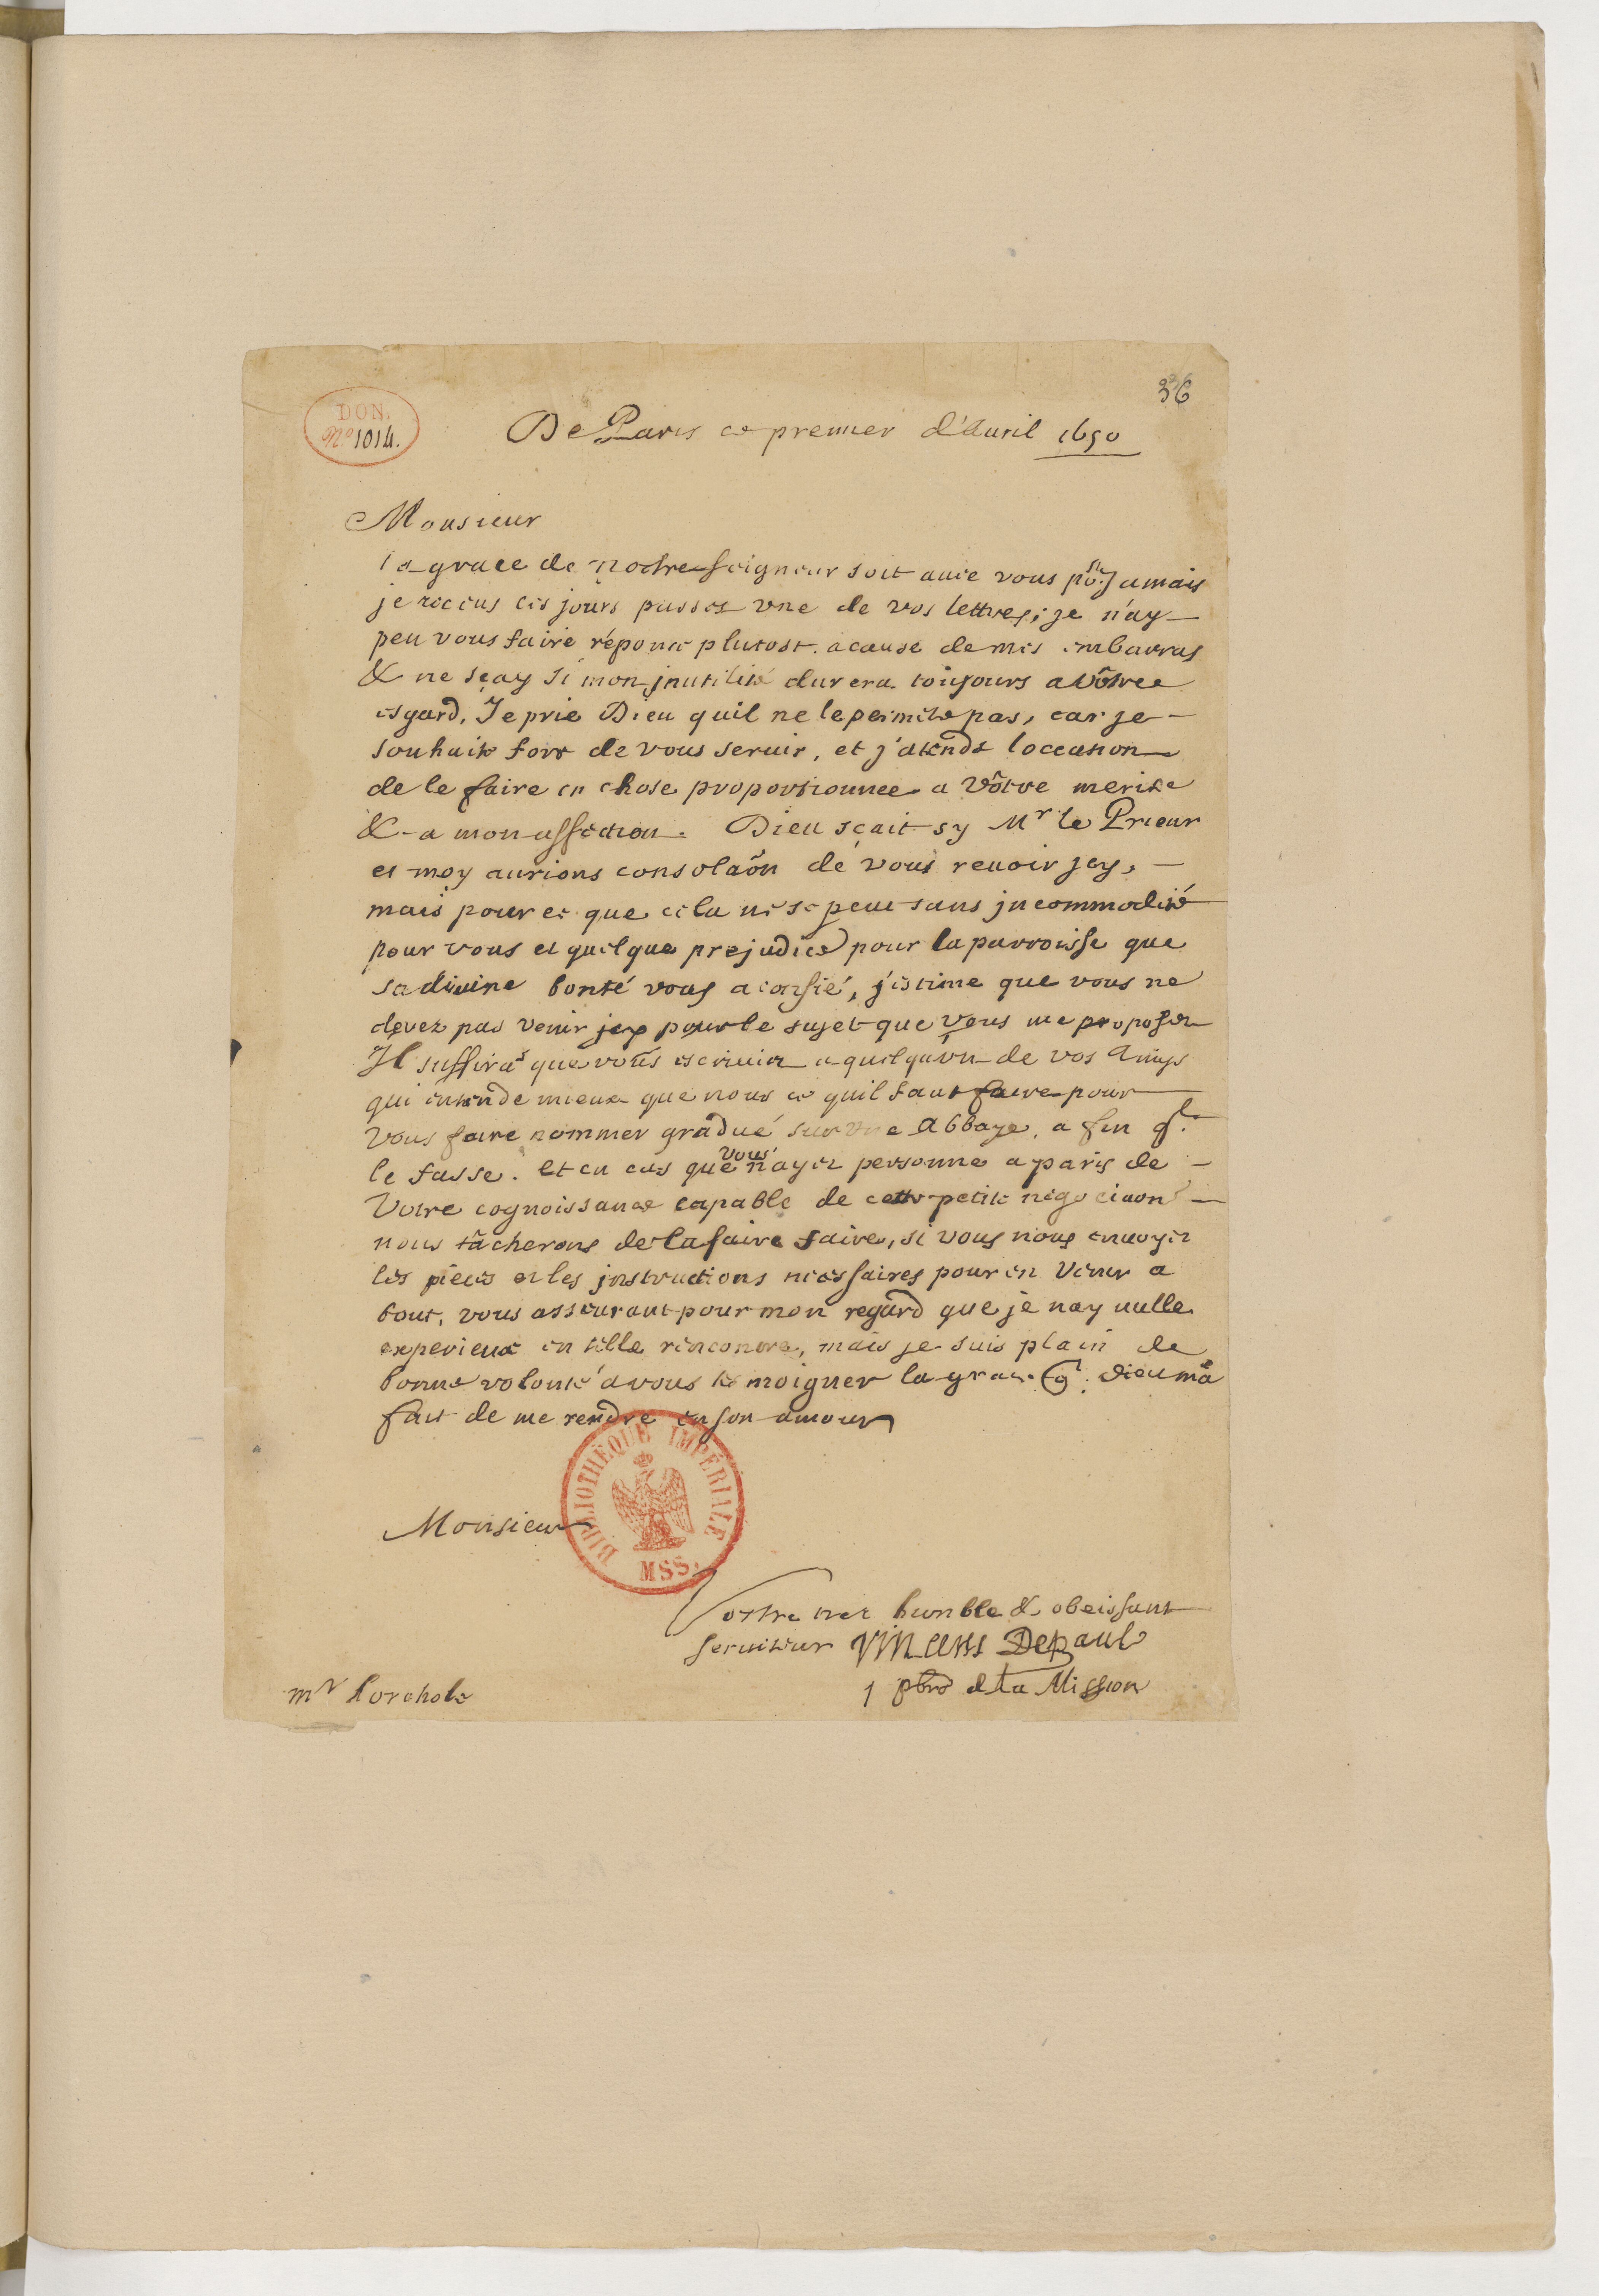 36
DON.
No 1014.
De Paris ce premier d'Auril 1650
Monsieur
la grace de nostre seigneur soit auec vous po.r Jamais
je receus ces jours passes vne de vos lettres; je n'ay
peu vous faire réponce plutost acause de mes embarras
& ne sçay si mon jnutilité durera toujours a vôtre
esgard, Je prie Dieu quil ne le permete pas, car je
souhaite fort de vous seruir, et j'atends loccasion
de le faire en chose proportionnee a vôtre merite
& a mon affection. Dieu sçait sy Mr le Prieur
et moy aurions consolaõn de vous reuoir jcy,
mais pource que cela ne se peut sans jncommodité
pour vous et quelque prejudice pour la parroisse que
sa diuine bonté vous a confié, j'estime que vous ne
devez pas venir jcy pour le sujet que vous me proposez
Il suffira que vous escriuiez a quelqu'vn de vos Amys
qui entende mieux que nous ce quil faut faire pour
vous faire nommer gradué sur vne Abbaye, a fin ql.
le fasse. Et en cas que vous n'ayez personne a paris de
Votre cognoissance capable de cette petite negociaon
nous tâcherons de la faire faire, si vous nous enuoyez
les pieces et les jnstructions necessaires pour en venir a
bout, vous asseurant pour mon regard que je nay nulle
experience en telle rencontre, mais je suis plain de
bonne volonté a vous temoigner la grace q. Dieu ma
fait de me rendre en son amour
Monsieur
BIBLIOTHÈQUE IMPÉRIALE
MSS.
Vostre tres humble & obeissant
seruiteur Vincens Depaul
j pbre d la Mission
mr horchole